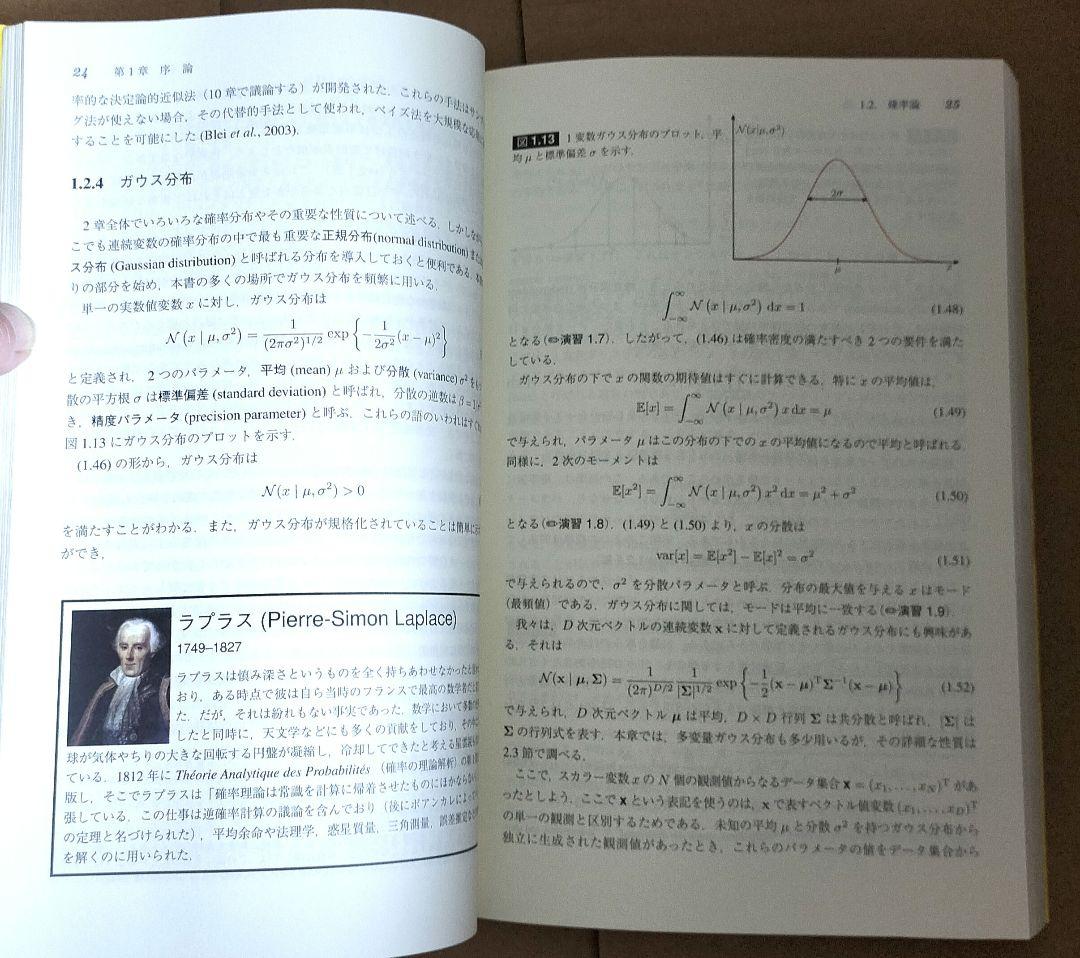 24 第1章 序 論
率的な決定論的近似法（10章で議論する）が開発された．これらの手法はサン
グ法が使えない場合，その代替的手法として使われ，ベイズ法を大規模な
することを可能にした (Blei et al., 2003).
1.2.4 ガウス分布
2章全体でいろいろな確率分布やその重要な性質について述べる．しかしな
こでも連続変数の確率分布の中で最も重要な正規分布(normal distribution)
ス分布 (Gaussian distribution) と呼ばれる分布を導入しておくと便利である．
りの部分を始め，本書の多くの場所でガウス分布を頻繁に用いる．
単一の実数値変数 x に対し，ガウス分布は
N(x | μ, σ²) = 1/(2πσ²)^{1/2} exp{−1/(2σ²)(x − μ)²}
と定義され，2つのパラメータ，平均 (mean) μ および分散 (variance) σ² を
散の平方根 σ は標準偏差 (standard deviation) と呼ばれ，分散の逆数は β = 1/
き，精度パラメータ (precision parameter) と呼ぶ．これらの語のいわれはす
図 1.13 にガウス分布のプロットを示す．
(1.46) の形から，ガウス分布は
N(x | μ, σ²) > 0
を満たすことがわかる．また，ガウス分布が規格化されていることは簡単に
ができ，
ラプラス (Pierre-Simon Laplace)
1749–1827
ラプラスは慎み深さというものを全く持ちあわせなかったと
おり，ある時点で彼は自ら当時のフランスで最高の数学者だと
た．だが，それは紛れもない事実であった．数学において多数の
したと同時に，天文学などにも多くの貢献をしており，その中に
球が気体やちりの大きな回転する円盤が凝縮し，冷却してできたと考える星雲説
ている．1812年に Théorie Analytique des Probabilités （確率の理論解析）の
版し，そこでラプラスは「確率理論は常識を計算に帰着させたものにほかならない
張している．この仕事は逆確率計算の議論を含んでおり（後にポアンカレによって
の定理と名づけられた），平均余命や法理学，惑星質量，三角測量，誤差推定な
を解くのに用いられた．
1.2. 確率論 25
図1.13 1変数ガウス分布のプロット．平
均 μ と標準偏差 σ を示す．
N(x|μ, σ²)
2σ
μ
x
∫_{−∞}^{∞} N(x | μ, σ²) dx = 1 (1.48)
となる(演習 1.7)．したがって，(1.46) は確率密度の満たすべき2つの要件を満た
している．
ガウス分布の下で x の関数の期待値はすぐに計算できる．特に x の平均値は，
E[x] = ∫_{−∞}^{∞} N(x | μ, σ²) x dx = μ (1.49)
で与えられ，パラメータ μ はこの分布の下での x の平均値になるので平均と呼ばれる．
同様に，2次のモーメントは
E[x²] = ∫_{−∞}^{∞} N(x | μ, σ²) x² dx = μ² + σ² (1.50)
となる(演習 1.8)．(1.49) と (1.50) より，x の分散は
var[x] = E[x²] − E[x]² = σ² (1.51)
で与えられるので，σ² を分散パラメータと呼ぶ．分布の最大値を与える x はモード
(最頻値) である．ガウス分布に関しては，モードは平均に一致する(演習 1.9)．
我々は，D 次元ベクトルの連続変数 x に対して定義されるガウス分布にも興味があ
る．それは
N(x | μ, Σ) = 1/(2π)^{D/2} 1/|Σ|^{1/2} exp{−1/2(x − μ)^T Σ^{−1}(x − μ)} (1.52)
で与えられ，D 次元ベクトル μ は平均，D × D 行列 Σ は共分散と呼ばれ，|Σ| は
Σ の行列式を表す．本章では，多変量ガウス分布も多少用いるが，その詳細な性質は
2.3 節で調べる．
ここで，スカラー変数 x の N 個の観測値からなるデータ集合 x = (x₁,...,x_N)^T があ
ったとしよう．ここで x という表記を使うのは，x で表すベクトル値変数 (x₁,...,x_D)^T
の単一の観測と区別するためである．未知の平均 μ と分散 σ² を持つガウス分布から
独立に生成された観測値があったとき，これらのパラメータの値をデータ集合から